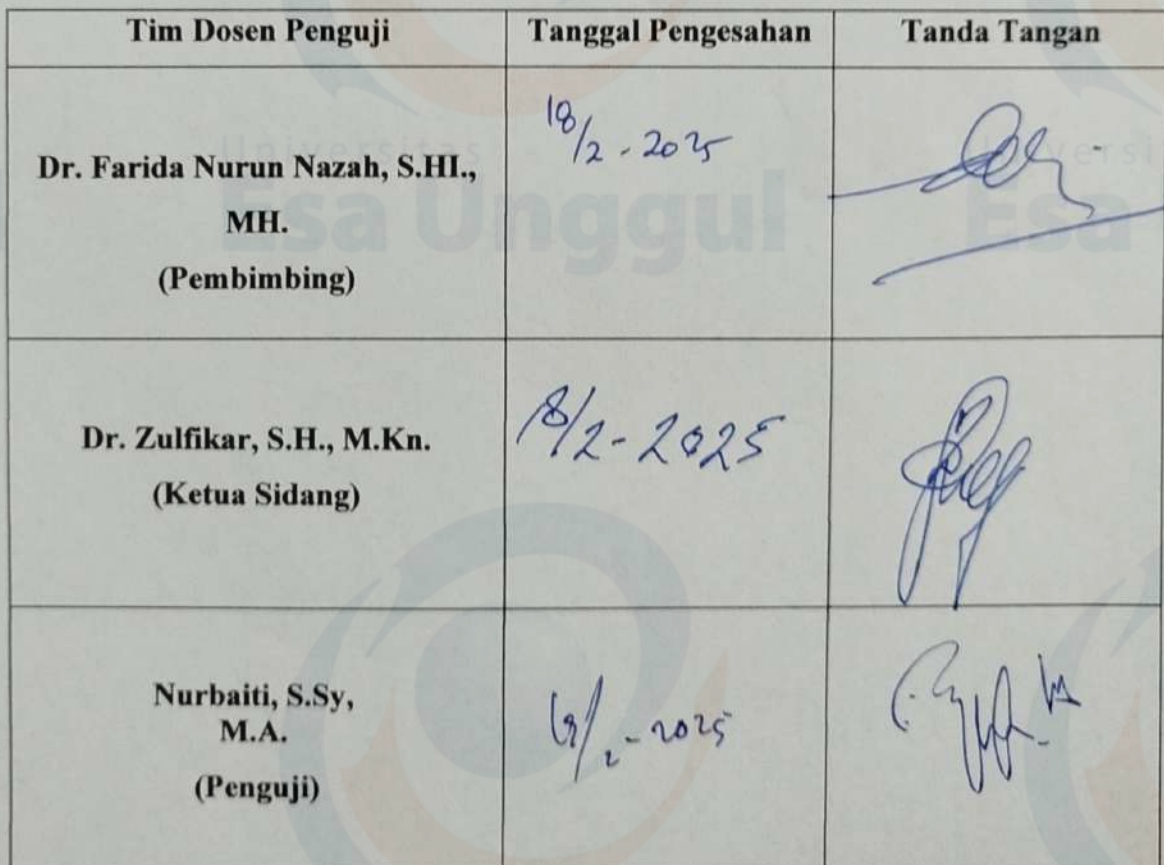 Tim Dosen Penguji
Tanggal Pengesahan
Tanda Tangan
Dr. Farida Nurun Nazah, S.HI.,
MH.
(Pembimbing)
18/2 - 2025
Dr. Zulfikar, S.H., M.Kn.
(Ketua Sidang)
18/2 - 2025
Nurbaiti, S.Sy,
M.A.
(Penguji)
/2 - 2025
Universitas
Esa Unggul
Universi
Esa